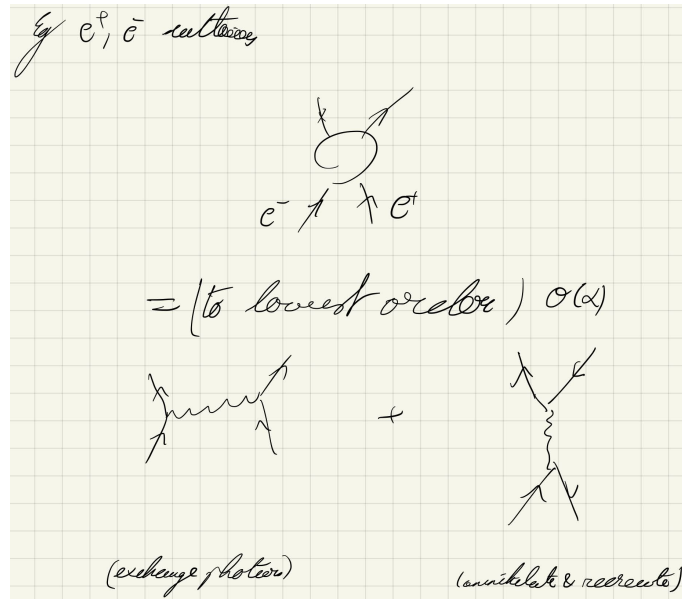 Eg e⁺, e⁻
e⁻ e⁺
= (to lowest order) O(α)
+
(exchange photons) (annihilate & recreate)